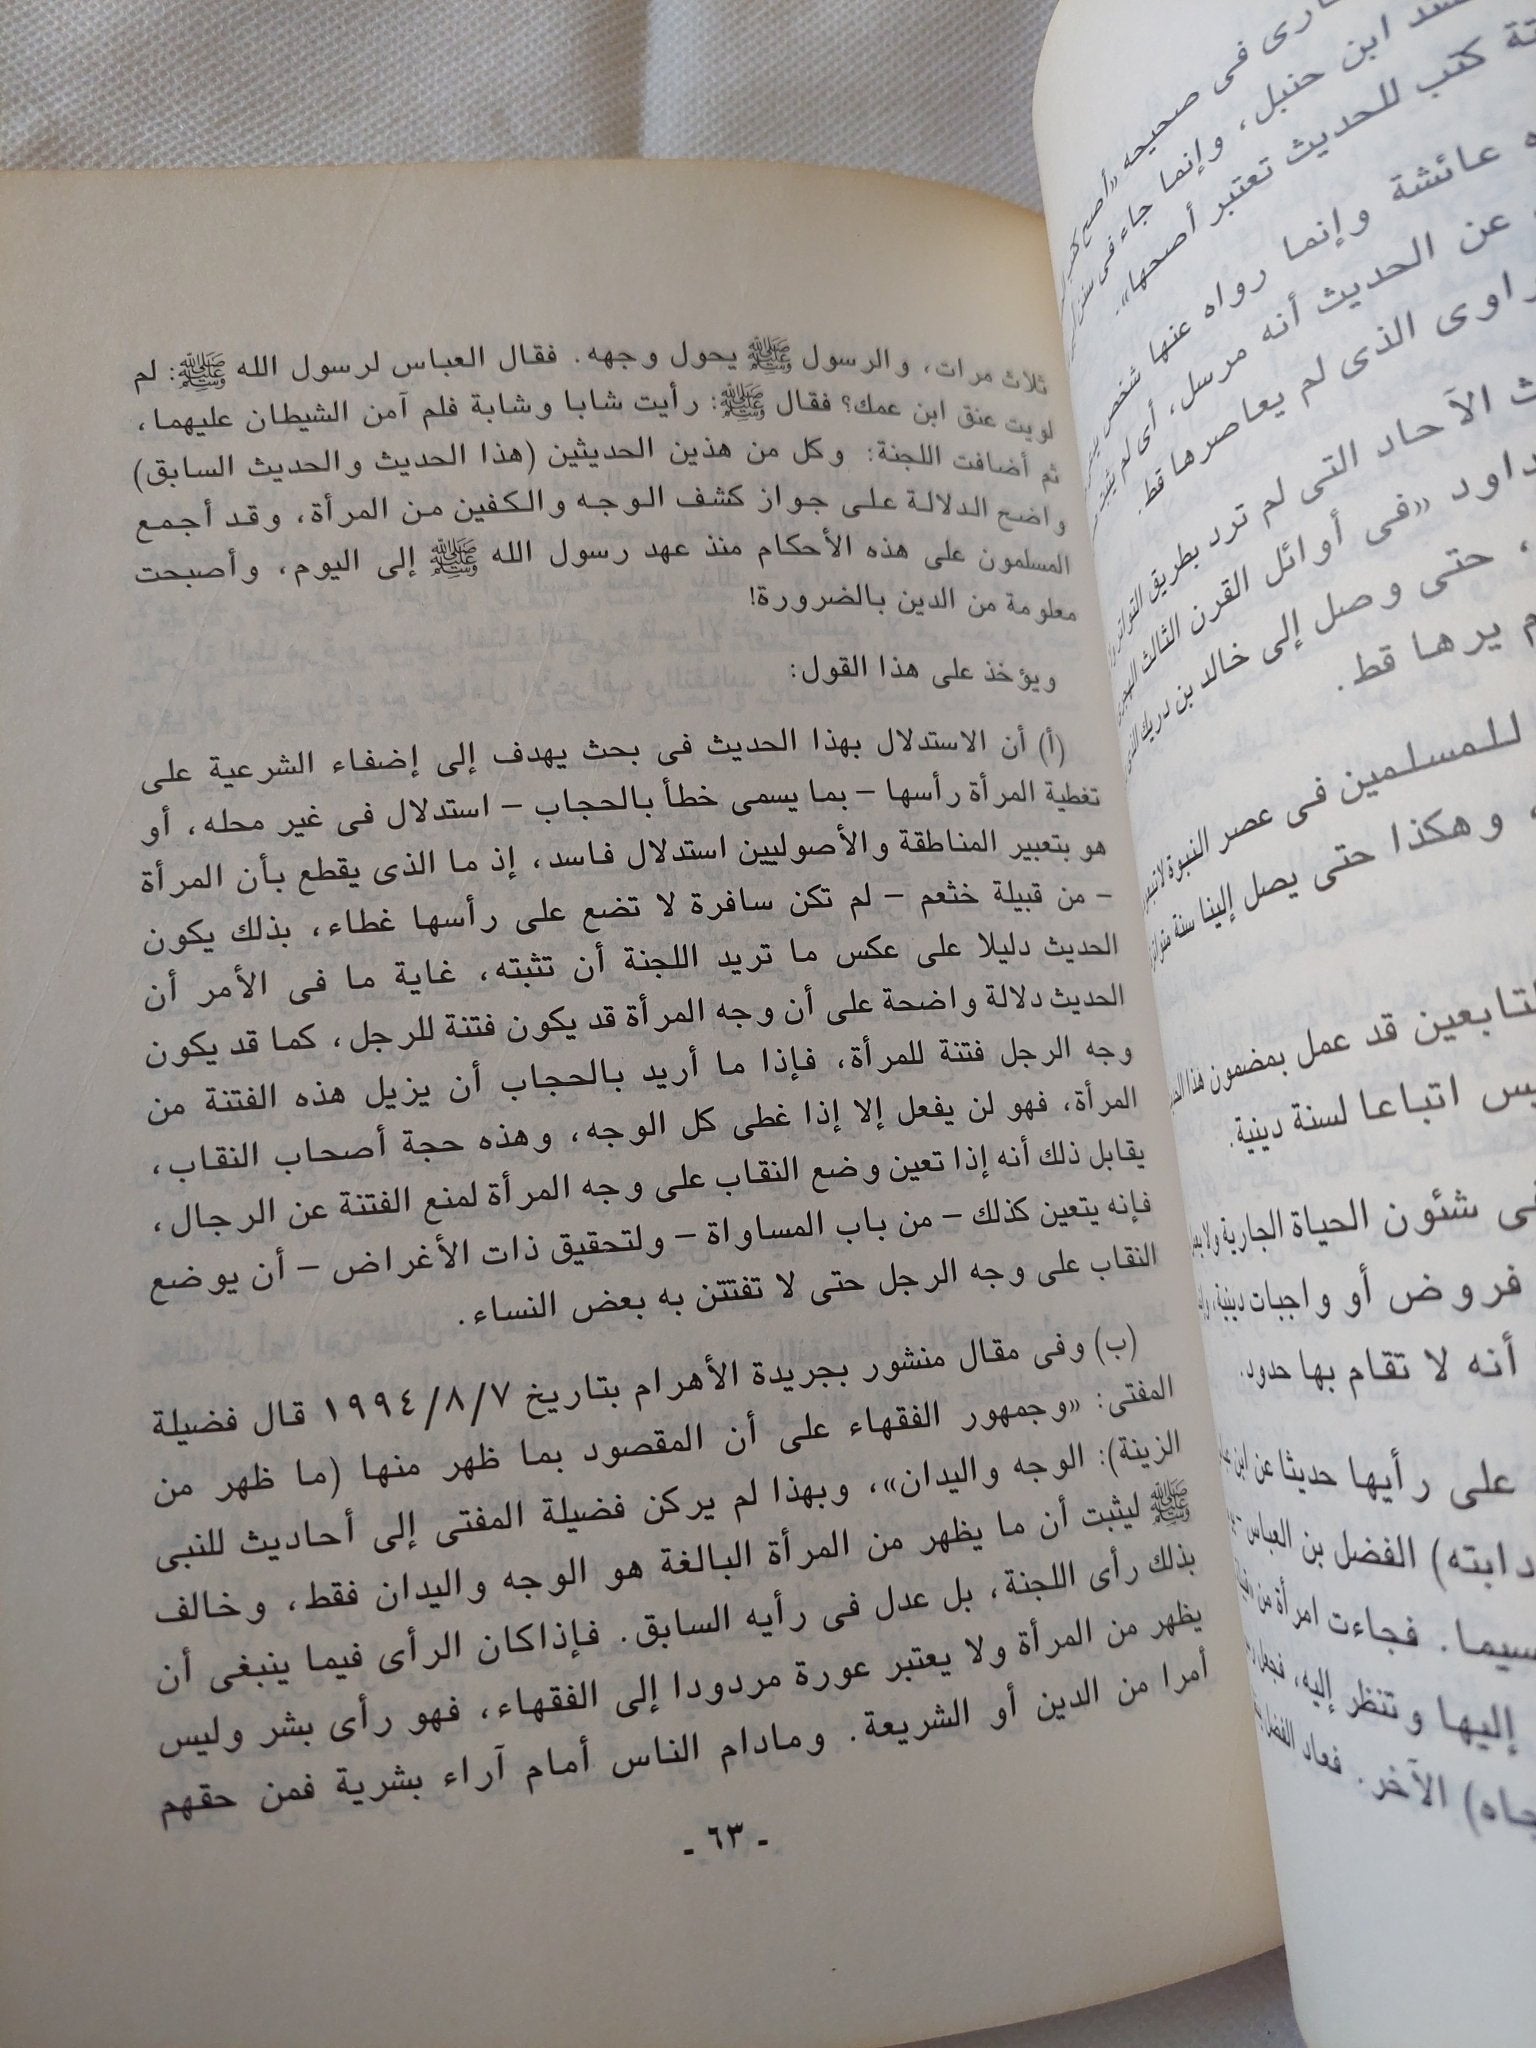 فى صحيحه «أصح كتب
ابن حنبل، وإنما جاء فى سنن
كتب للحديث تعتبر أصحها».
عائشة وإنما رواه عنها شخص
عن الحديث أنه مرسل، أى لم
الذى لم يعاصرها قط.
الآحاد التى لم ترد بطريق التواتر
داود «فى أوائل القرن الثالث الهجرى
، حتى وصل إلى خالد بن دريك الذى
يرها قط.
للمسلمين فى عصر النبوة
، وهكذا حتى يصل إلينا سنة
قد عمل بمضمون هذا
اتباعا لسنة دينية.
شئون الحياة الجارية ولا
فروض أو واجبات دينية،
أنه لا تقام بها حدود.
على رأيها حديثا عن ابن
دابته) الفضل بن العباس –
فجاءت امرأة من
إليها وتنظر إليه، فجعل
الآخر. فعاد الفضل
ثلاث مرات، والرسول ﷺ يحول وجهه. فقال العباس لرسول الله ﷺ: لم
لويت عنق ابن عمك؟ فقال ﷺ: رأيت شابا وشابة فلم آمن الشيطان عليهما،
ثم أضافت اللجنة: وكل من هذين الحديثين (هذا الحديث والحديث السابق)
واضح الدلالة على جواز كشف الوجه والكفين من المرأة، وقد أجمع
المسلمون على هذه الأحكام منذ عهد رسول الله ﷺ إلى اليوم، وأصبحت
معلومة من الدين بالضرورة!
ويؤخذ على هذا القول:
(أ) أن الاستدلال بهذا الحديث فى بحث يهدف إلى إضفاء الشرعية على
تغطية المرأة رأسها – بما يسمى خطأ بالحجاب – استدلال فى غير محله، أو
هو بتعبير المناطقة والأصوليين استدلال فاسد، إذ ما الذى يقطع بأن المرأة
– من قبيلة خثعم – لم تكن سافرة لا تضع على رأسها غطاء، بذلك يكون
الحديث دليلا على عكس ما تريد اللجنة أن تثبته، غاية ما فى الأمر أن
الحديث دلالة واضحة على أن وجه المرأة قد يكون فتنة للرجل، كما قد يكون
وجه الرجل فتنة للمرأة، فإذا ما أريد بالحجاب أن يزيل هذه الفتنة من
المرأة، فهو لن يفعل إلا إذا غطى كل الوجه، وهذه حجة أصحاب النقاب،
يقابل ذلك أنه إذا تعين وضع النقاب على وجه المرأة لمنع الفتنة عن الرجال،
فإنه يتعين كذلك – من باب المساواة – ولتحقيق ذات الأغراض – أن يوضع
النقاب على وجه الرجل حتى لا تفتتن به بعض النساء.
(ب) وفى مقال منشور بجريدة الأهرام بتاريخ ١٩٩٤/٨/٧ قال فضيلة
المفتى: «وجمهور الفقهاء على أن المقصود بما ظهر منها (ما ظهر من
الزينة): الوجه واليدان»، وبهذا لم يركن فضيلة المفتى إلى أحاديث للنبى
ﷺ ليثبت أن ما يظهر من المرأة البالغة هو الوجه واليدان فقط، وخالف
بذلك رأى اللجنة، بل عدل فى رأيه السابق. فإذاكان الرأى فيما ينبغى أن
يظهر من المرأة ولا يعتبر عورة مردودا إلى الفقهاء، فهو رأى بشر وليس
أمرا من الدين أو الشريعة. ومادام الناس أمام آراء بشرية فمن حقهم
- ٦٣ -